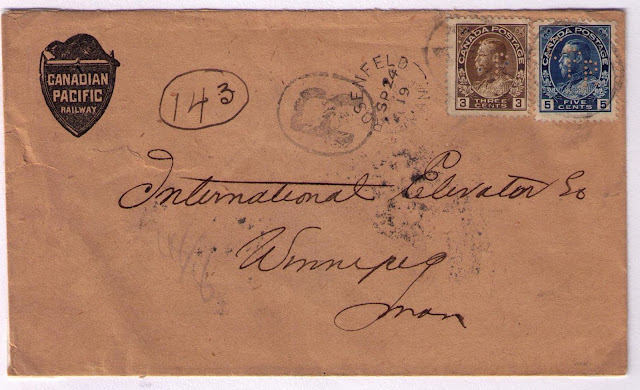 CANADIAN
PACIFIC
RAILWAY
143
R
OSENFELD
SP 24
19
MAN
CANADA POSTAGE
3 THREE CENTS 3
CANADA POSTAGE
5 FIVE CENTS 5
International Elevator Co
Winnipeg
Man